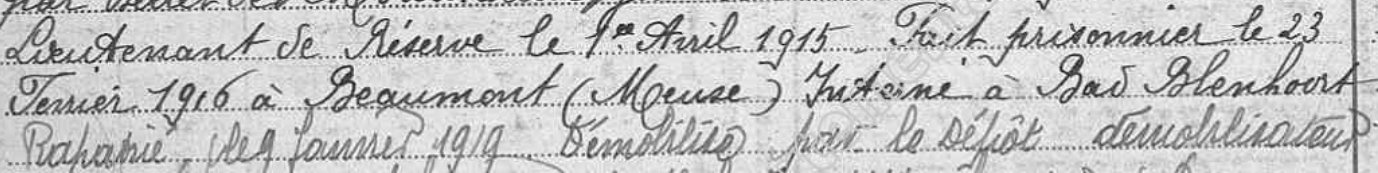 Lieutenant de Réserve le 1er Avril 1915. Fait prisonnier le 23
Fevrier 1916 à Beaumont (Meuse) Interné à Bad Blenhorst
Rapatrié le 9 Janvier 1919 Démobilisé par le Dépôt démobilisateur